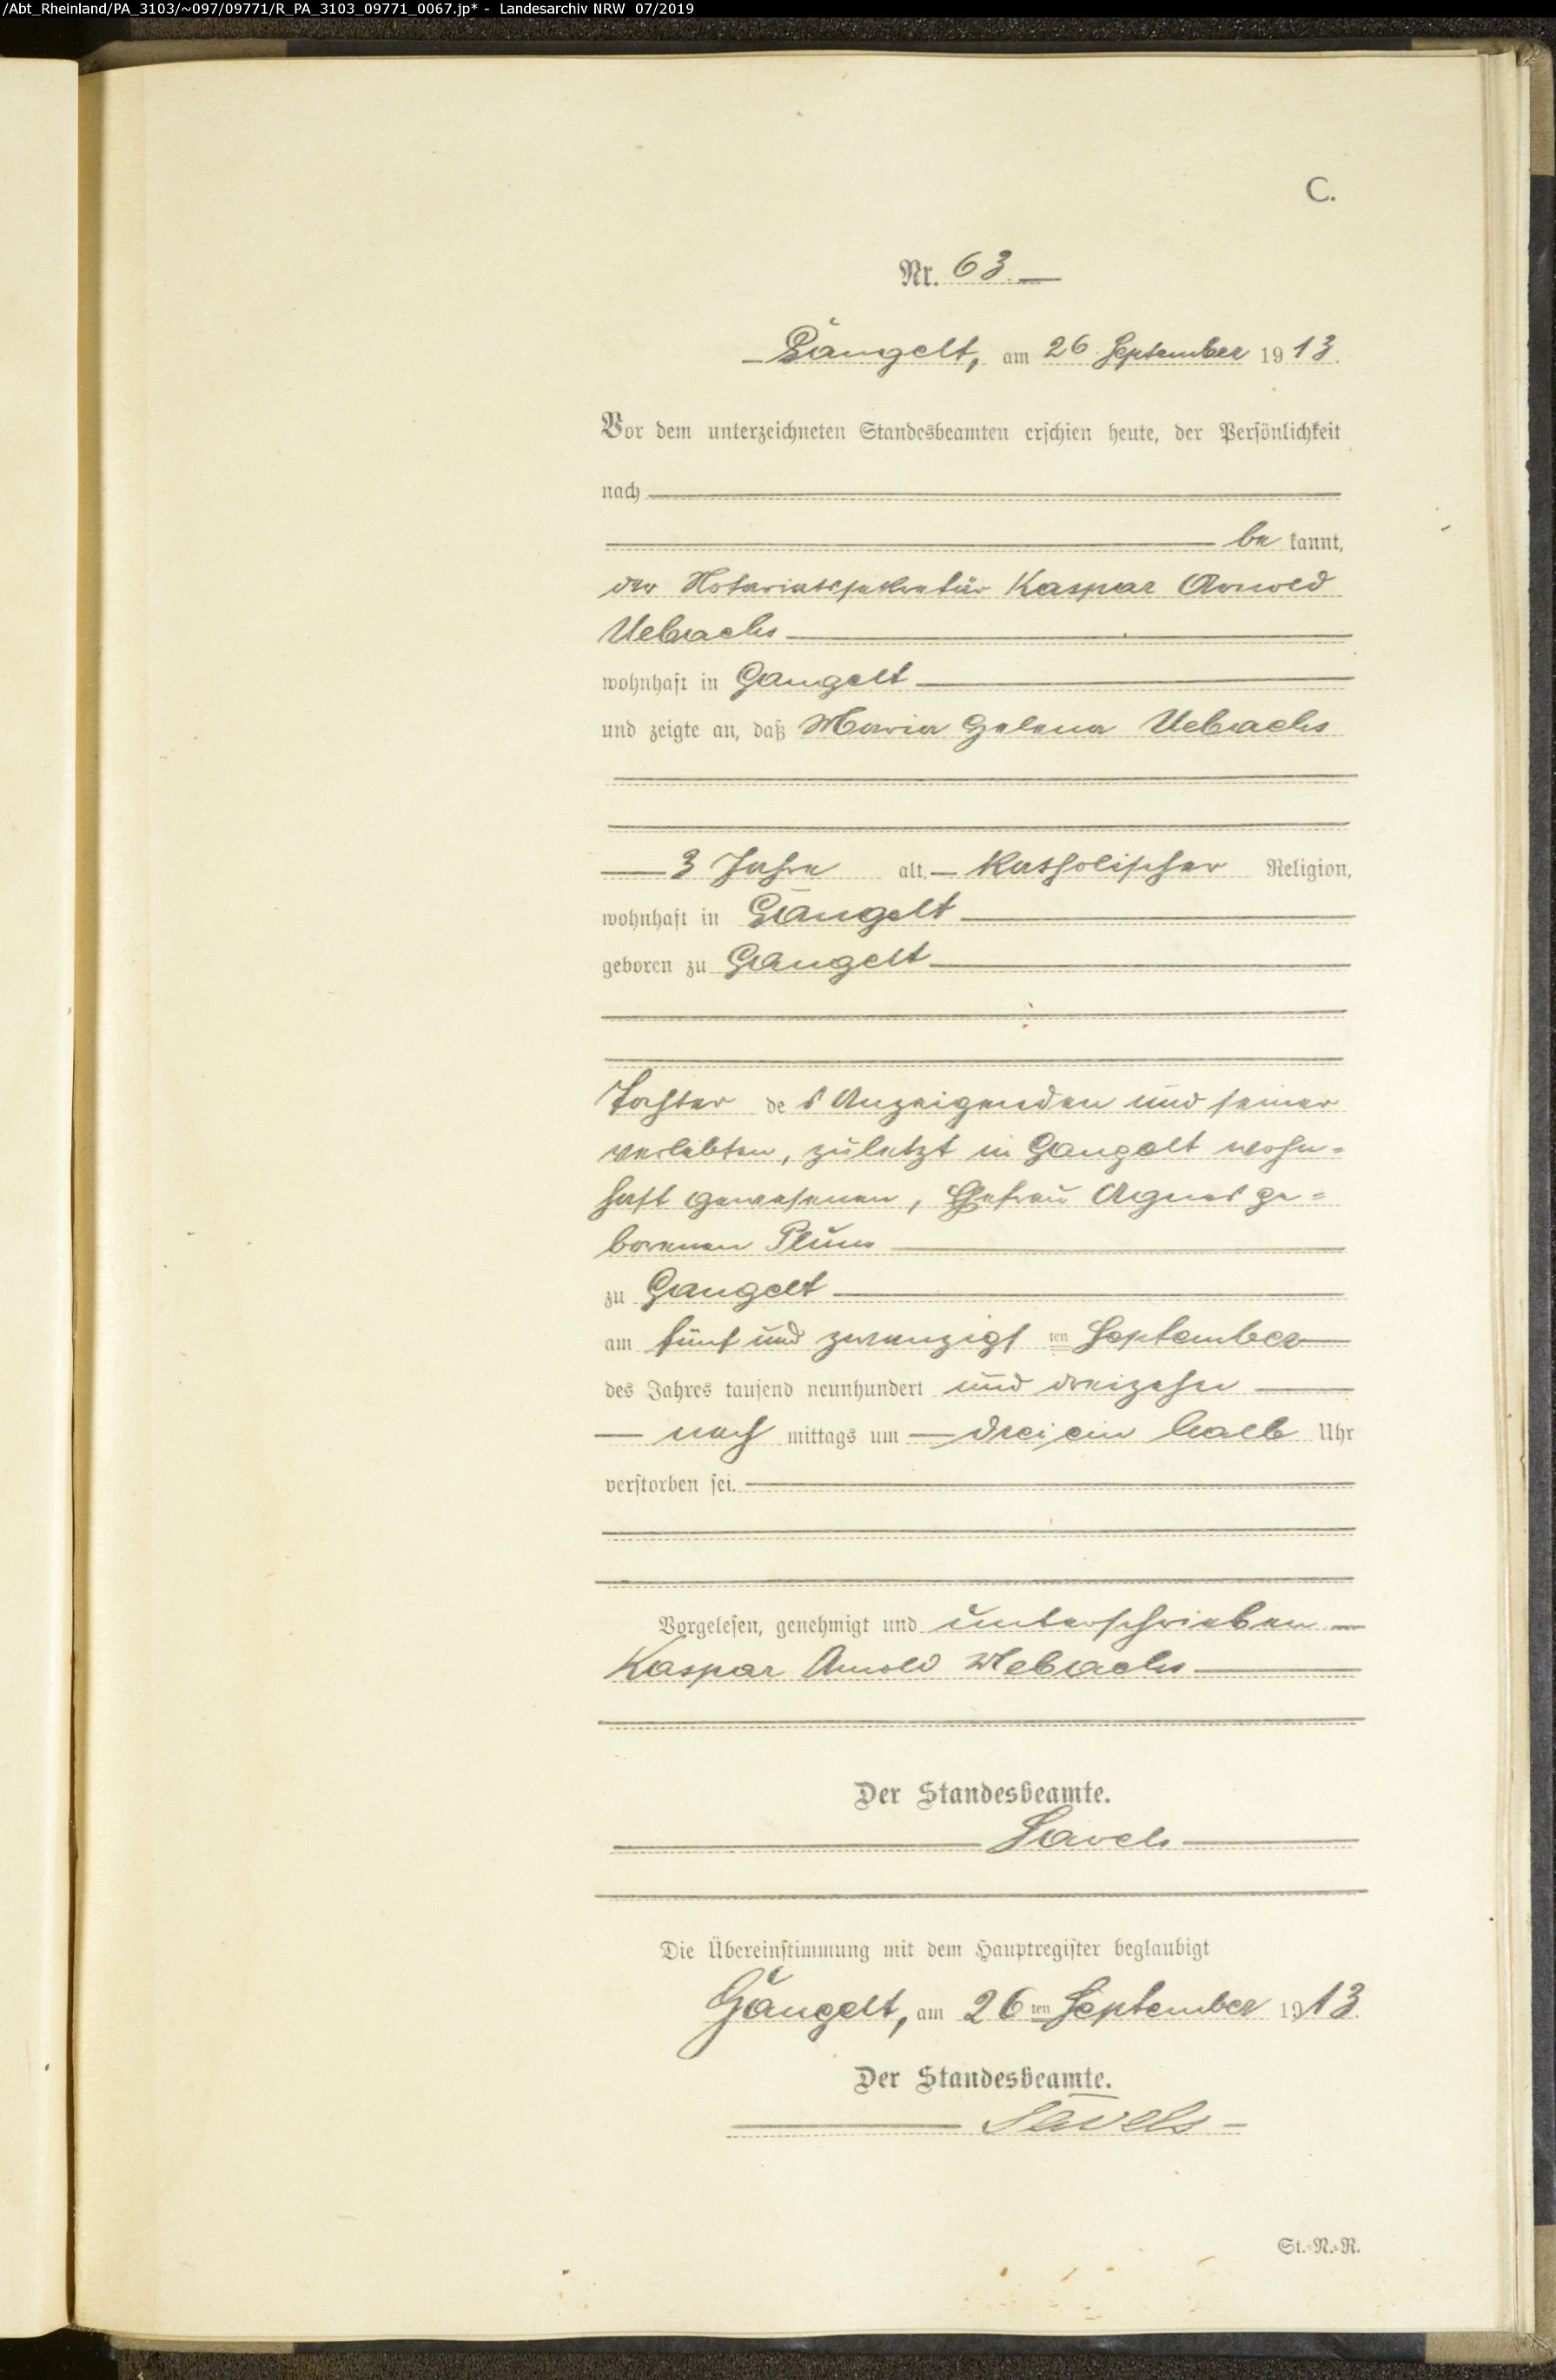 /Abt_Rheinland/PA_3103/~097/09771/R_PA_3103_09771_0067.jp* - Landesarchiv NRW 07/2019
C.
Nr. 63.
Gangelt, am 26. September 1913.
Vor dem unterzeichneten Standesbeamten erschien heute, der Persönlichkeit
nach
be kannt,
der Notariatssekretär Kaspar Arnold
Uebachs
wohnhaft in Gangelt
und zeigte an, daß Maria Helena Uebachs
3 Jahre alt, katholischer Religion,
wohnhaft in Gangelt
geboren zu Gangelt
Tochter des Anzeigenden und seiner
verlebten, zuletzt in Gangelt wohn=
haft gewesenen, Ehefrau Agnes ge=
borenen Plum
zu Gangelt
am fünf und zwanzigs ten September
des Jahres tausend neunhundert und dreizehn
nach mittags um drei ein halb Uhr
verstorben sei.
Vorgelesen, genehmigt und unterschrieben
Kaspar Arnold Uebachs
Der Standesbeamte.
Savels
Die Übereinstimmung mit dem Hauptregister beglaubigt
Gangelt, am 26 ten September 1913.
Der Standesbeamte.
Savels
St.=N.=R.